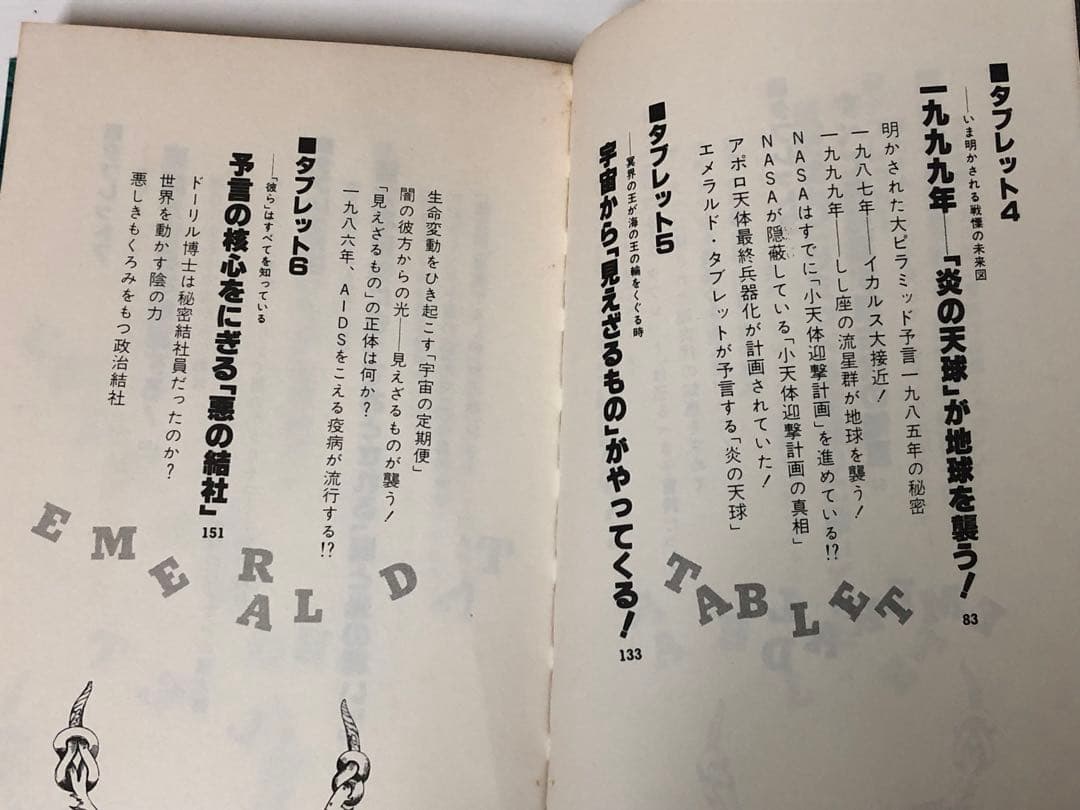 ■タブレット4
──いま明かされる戦慄の未来図
一九九九年──「炎の天球」が地球を襲う! 83
明かされた大ピラミッド予言一九八五年の秘密
一九八七年──イカルス大接近!
一九九九年──しし座の流星群が地球を襲う!
NASAはすでに「小天体迎撃計画」を進めている!?
NASAが隠蔽している「小天体迎撃計画の真相」
アポロ天体最終兵器化が計画されていた!
エメラルド・タブレットが予言する「炎の天球」
■タブレット5
──冥界の王が海の王の輪をくぐる時
宇宙から「見えざるもの」がやってくる! 133
TABLET
生命変動をひき起こす「宇宙の定期便」
闇の彼方からの光──見えざるものが襲う!
「見えざるもの」の正体は何か?
一九八六年、AIDSをこえる疫病が流行する!?
■タブレット6
──「彼ら」はすべてを知っている
予言の核心をにぎる「悪の結社」 151
ドーリル博士は秘密結社員だったのか?
世界を動かす陰の力
悪しきもくろみをもつ政治結社
EMERALD